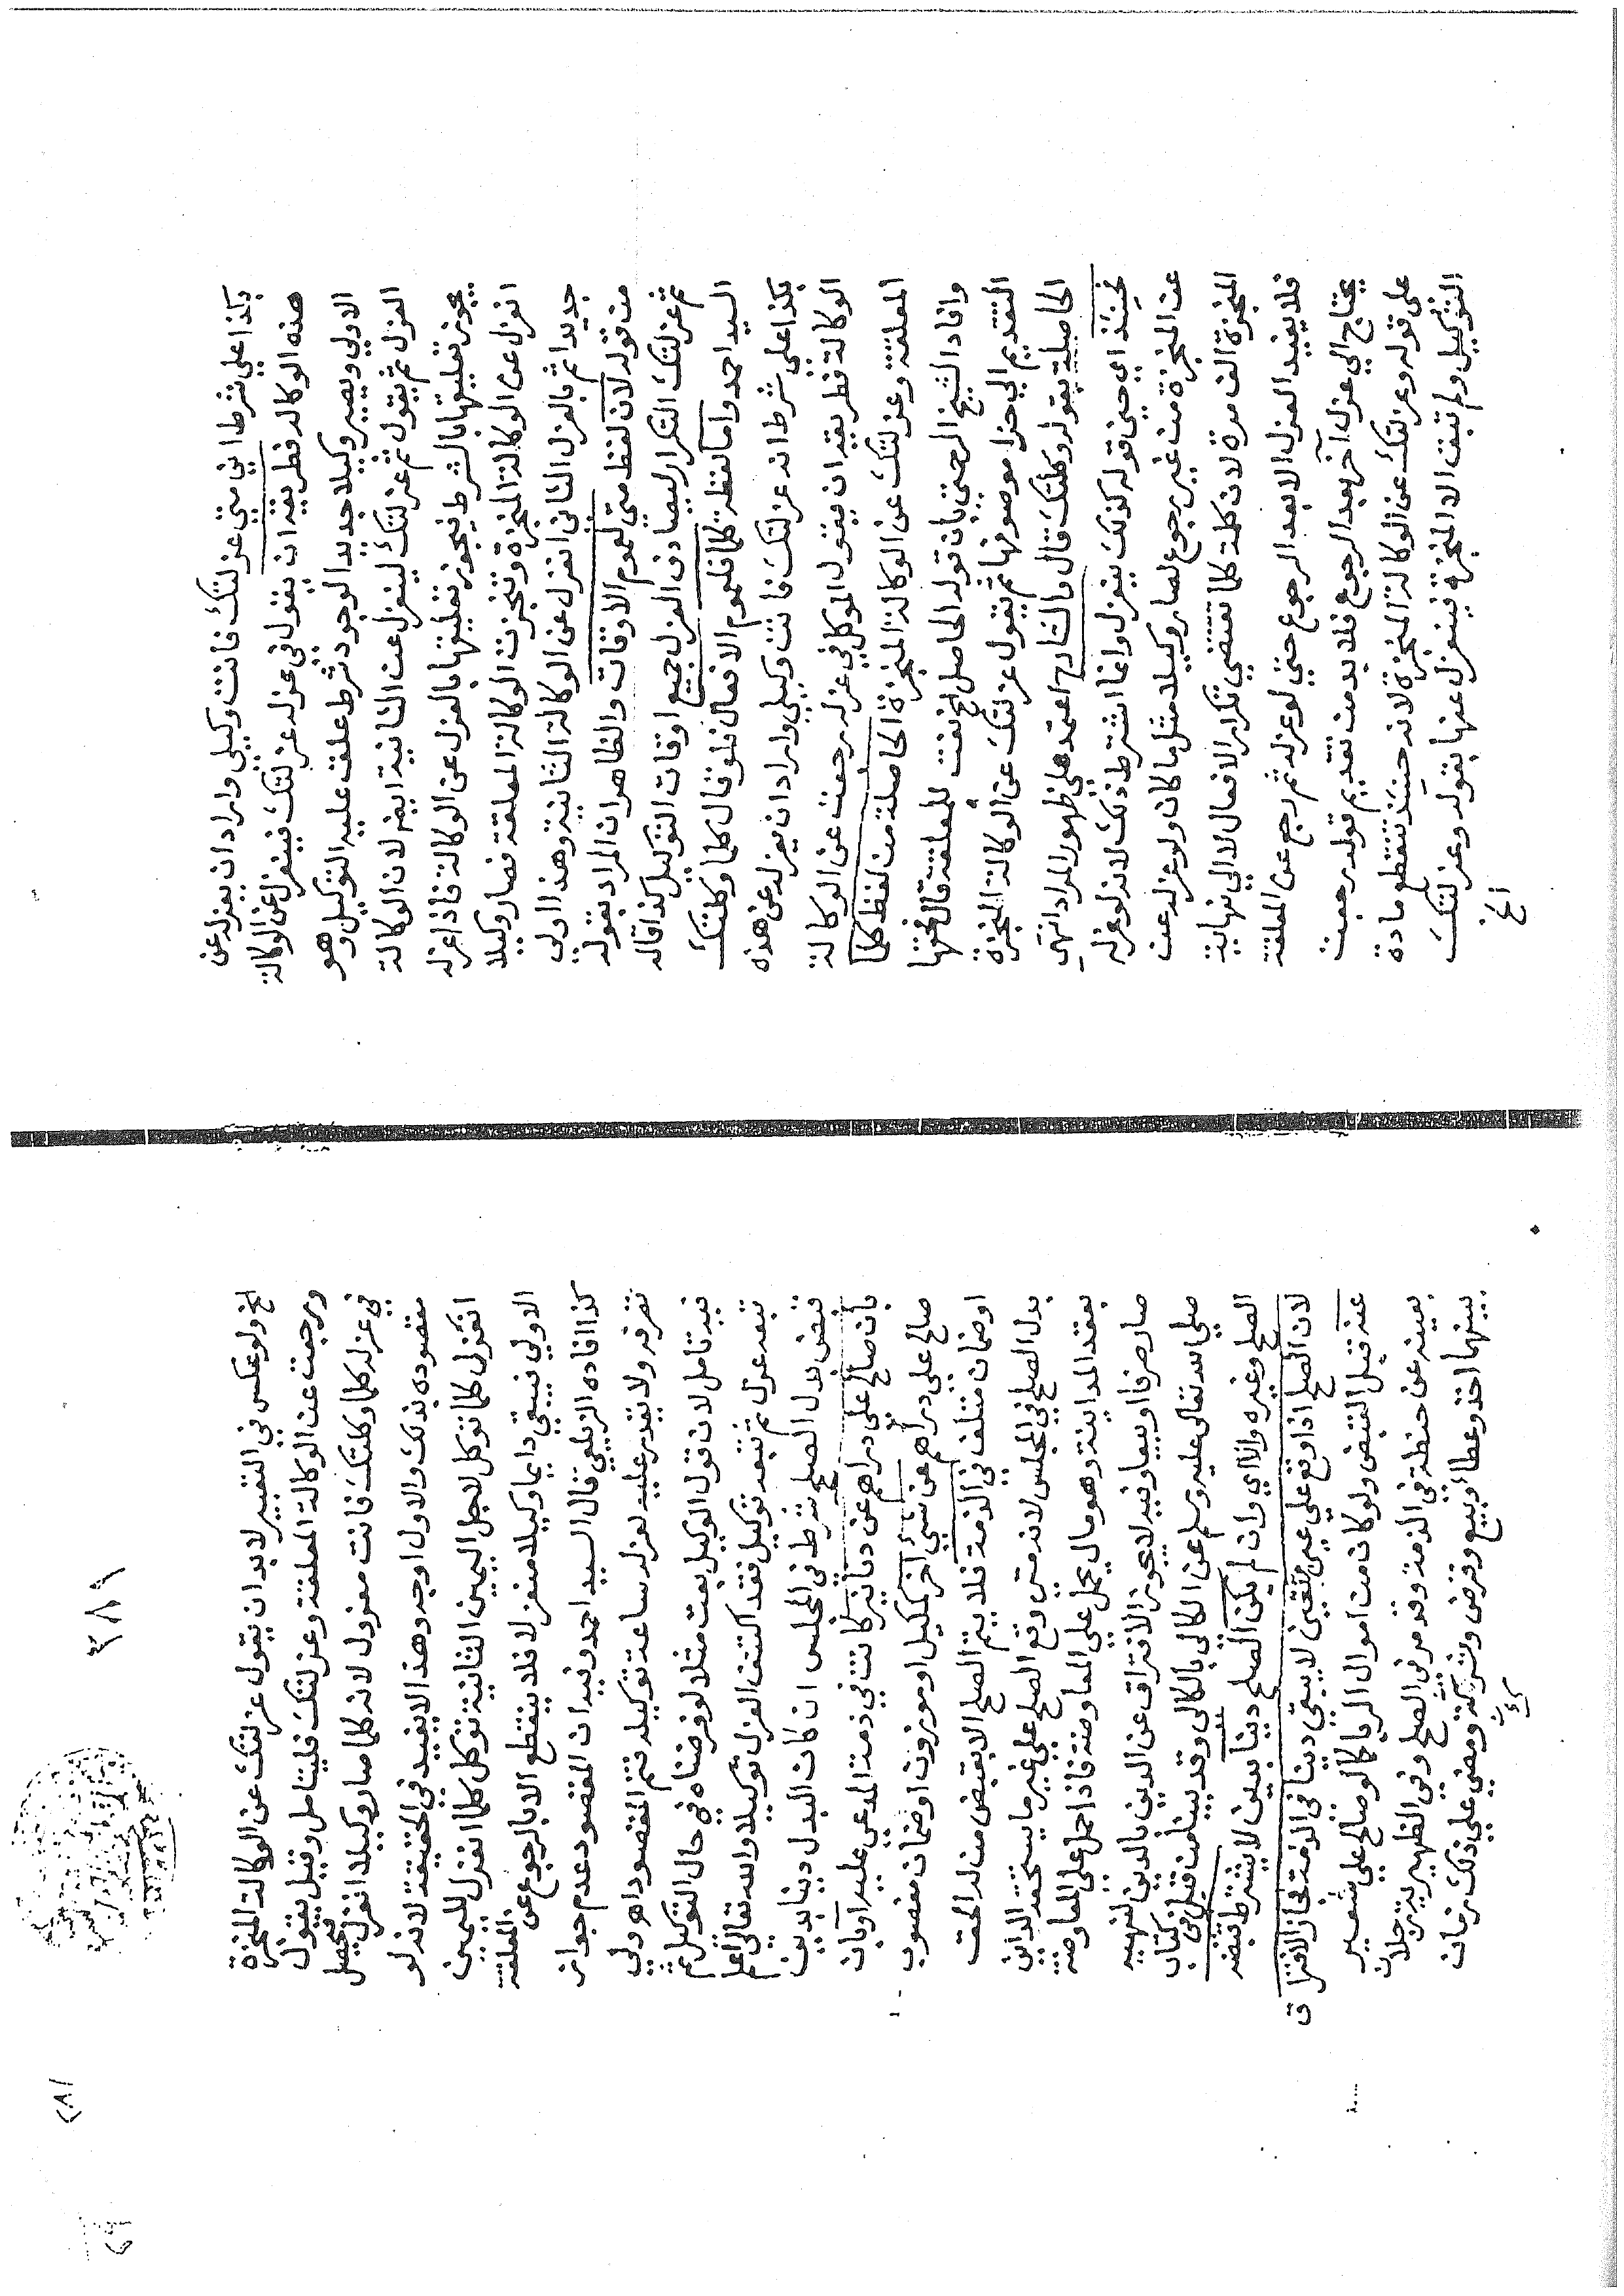 بكذا علي شرط اني متي عزلتك فانت وكيلي واراد ان يعزله عن
هذه الوكاله فطريقه ان يقول في عزله عزلتك فينعزل عن الوكالة
الاولي ويصير وكيلا جديدا لوجود شرط علق عليه التوكيل وهو
العزل ثم يقول ثم عزلتك لينعزل عن الثانية ايضا لان الوكالة
يجوز تعليقها بالشرط فيجوز تعليقها بالعزل عن الوكالة فاذا عزله
انعزل عن الوكالة المنجزة وتنجزت الوكالة المعلقة فصار وكيلا
جديدا ثم بالعزل الثاني انعزل عن الوكالة الثانية وهذا اولي
من قوله لان لفظ متي لعموم الاوقات والظاهر ان المراد بقوله
ثم عزلتك التكرار ليصادف العزل جميع اوقات التوكيل كذا قاله
السيد احمد واما لفظة كلما فلعموم الافعال فلو قال كلما وكلتك
بكذا علي شرط انه عزلتك فانت وكيلي واراد ان يعزله عن هذه
الوكالة فطريقه ان يقول الموكل في عزله رجعت عن الوكالة
المعلقة وعزلتك عن الوكالة المنجزة الحاصلة من لفظ كلما
وافاد الشيخ الرحمتي بان قوله الحاصل الخ نعت للمعلقة قال فحقها
التقديم الي حذا موصوفها ثم يقول عزلتك عن الوكالة المنجزة
الحاصلة بقوله وكلتك قال والشارح اعتمد علي ظهور المراد انتهي
فحينئذ اي حين قوله كذلك ينعزل وانما اشترط ذلك لانه لو عزله
عن المنجزة من غير رجوع لصار وكيلا مثل ما كان ولو عزله عن
المنجزة الف مرة لان كلمة كلما تقتضي تكرار الافعال لا الي نهاية
فلا يفيد العزل الا بعد الرجوع حتي لو عزله ثم رجع عن المعلقة
يحتاج الي عزل آخر بعد الرجوع فلا بد من تقديم قوله رجعت
علي قوله وعزلتك عن الوكالة المنجزة لانه حينئذ تنقطع مادة
التوكيل ولم تبق الا المنجزة فينعزل عنها بقوله وعزلتك
الخ
٣٨٩
الخ ولو عكس في التعبير لا بد ان يقول عزلتك عن الوكالة المنجزة
ورجعت عن الوكالة المعلقة وعزلتك فليتامل وقيل يقول
في عزله كلما وكلتك فانت معزول لانه كلما صار وكيلا انعزل فيحصل
مقصوده بذلك والاول اوجه وهذا لا يفيد في الحقيقة لانه لو
انعزل كلما توكل لاجل اليمين الثانية توكل كلما انعزل لليمين
الاولي فيبقي دايما وكيلا منعزلا فلا ينقطع الا بالرجوع عن المعلقة
كذا افاده الزيلعي قال السيد احمد وفيه ان المقصود عدم جواز
تصرفه ولا يقدر عليه لعزله ساعة توكيله فتم المقصود اهـ ولي
فيه تامل لان قول الوكيل بعت مثلا لو فرضناه في حال التوكيل ثم
تبعه عزل ثم تبعه توكيل فقد اكتنف العزل توكيلا والله تعالي اعلم
قبض بدل الصلح شرط في المجلس ان كان البدل دينا بدين
بأن صالح علي دراهم عن دنانير كانت في ذمة المدعي عليه أو بان
صالح علي دراهم عن شيء آخر كمكيل او موزون او ضمان مغصوب
او ضمان متلف في الذمة فلا يتم الصلح الا بقبض من له الحق
بدل الصلح في المجلس لانه متي وقع الصلح علي غير ما يستحقه الداين
بعقد المداينة وهو مال يحمل علي المعاوضة فاذا حمل علي المعاوضة
صار صرفا او بيعا وفيه لا يجوز الافتراق عن الدين بالدين لنهيه
صلي الله تعالي عليه وسلم عن الكالي بالكالي وقد بيناه من قبل في كتاب
الصلح وغيره والا اي وان لم يكن الصلح دينا بدين لا يشترط قبضه
لان الصلح اذا وقع علي عين تتعين لا يبقي دينا في الذمة فجاز الافتراق
عنه قبل القبض ولو كان من اموال الربا كما لو صالح علي شعير
بعينه عن حنطة في الذمة وقد مر في الصلح وفي الظهيرية رجلان
بينهما اخذ وعطا أو بيع وقرض وشركة ومضي علي ذلك زمان